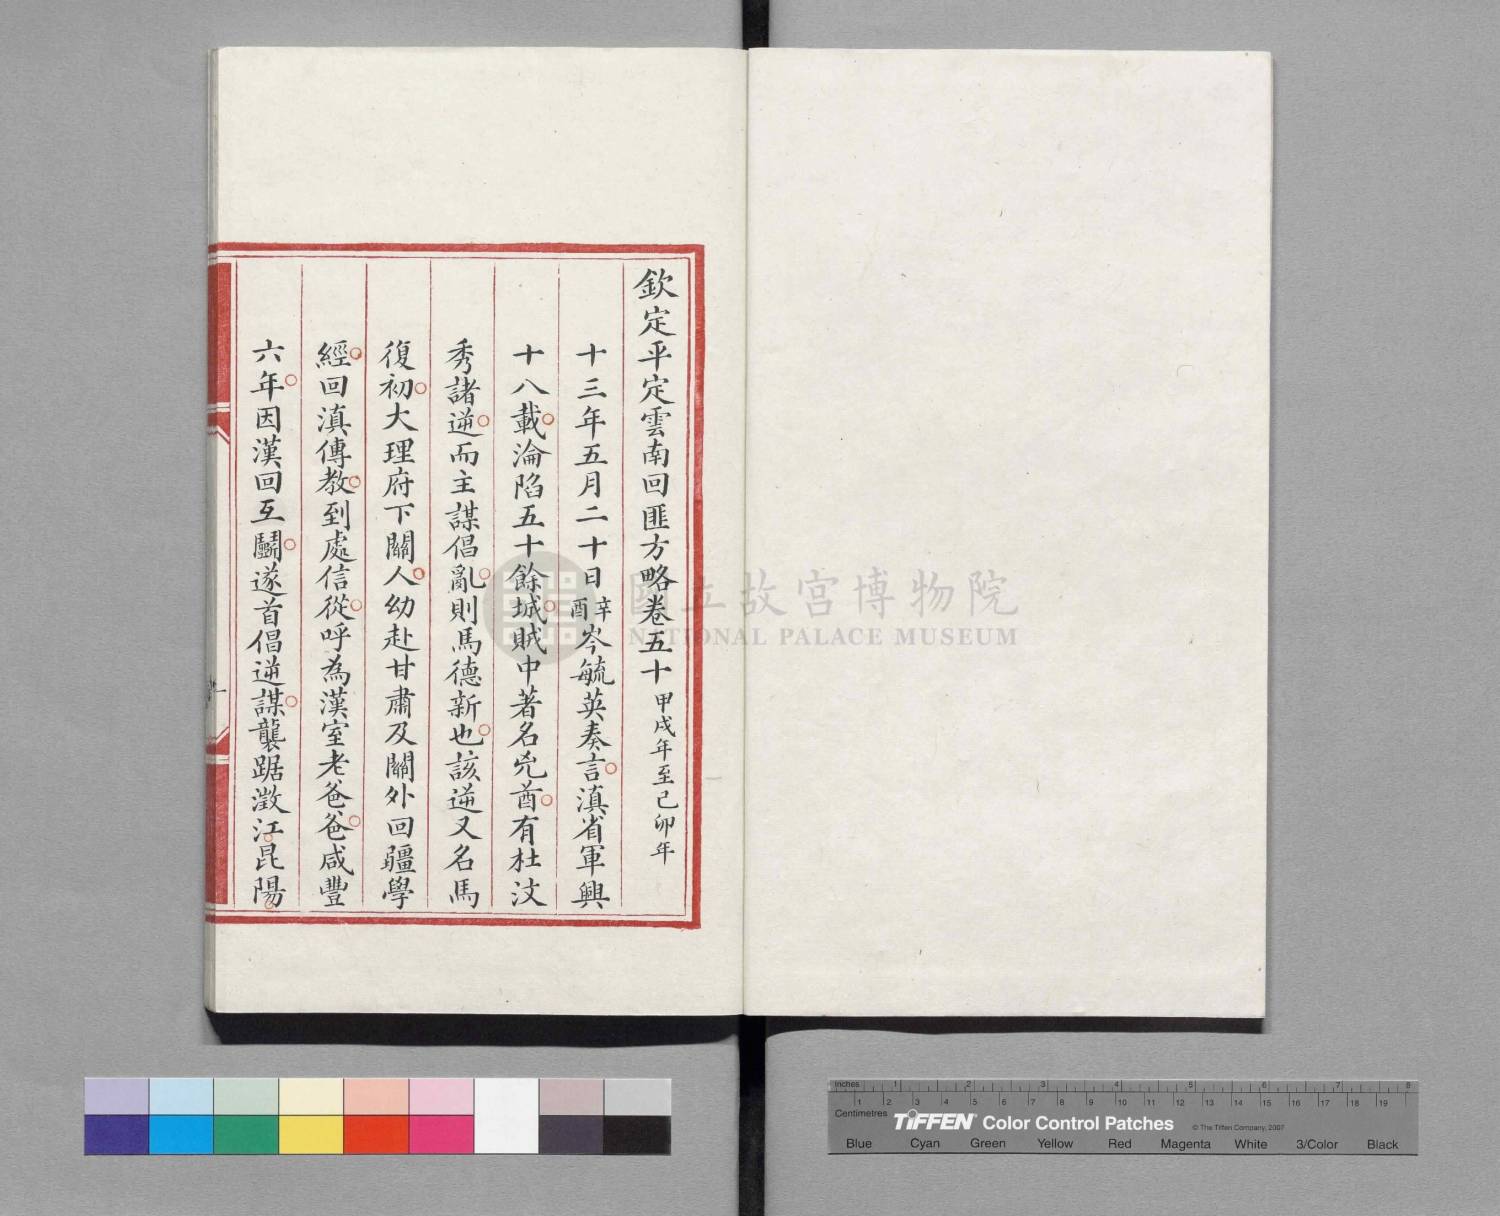 欽定平定雲南回匪方略卷五十 甲戌年至己卯年
十三年五月二十日辛酉岑毓英奏言滇省軍興
十八載淪陷五十餘城賊中著名兇酋有杜汶
秀諸逆而主謀倡亂則馬德新也該逆又名馬
復初大理府下關人幼赴甘肅及關外回疆學
經回滇傳教到處信從呼為漢室老爸爸咸豐
六年因漢回互鬬遂首倡逆謀襲踞澂江昆陽
國立故宮博物院
NATIONAL PALACE MUSEUM
Inches 1 2 3 4 5 6 7 8
1 2 3 4 5 6 7 8 9 10 11 12 13 14 15 16 17 18 19
Centimetres
TIFFEN® Color Control Patches © The Tiffen Company, 2007
Blue Cyan Green Yellow Red Magenta White 3/Color Black